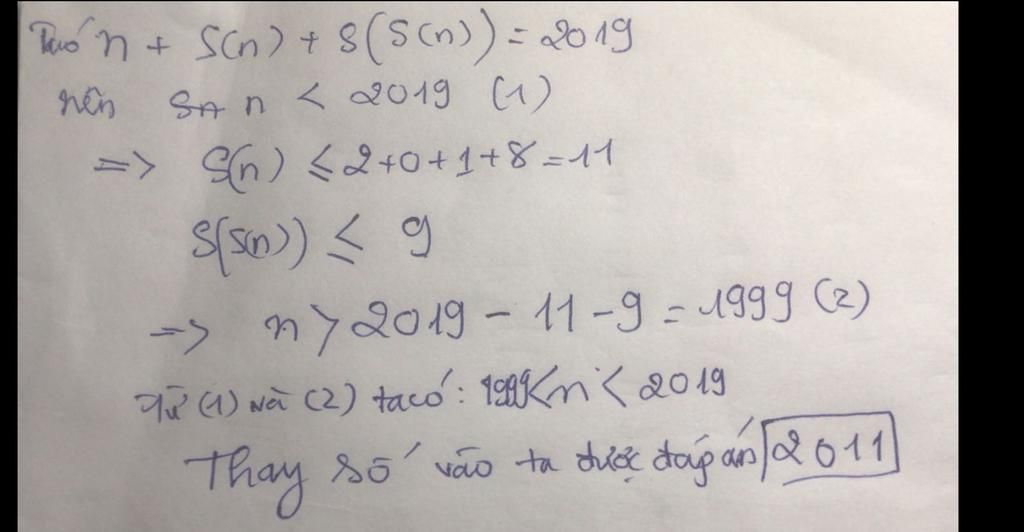 Ta có n + S(n) + S(S(n)) = 2019
nên n < 2019 (1)
=> S(n) ≤ 2+0+1+8 = 11
S(S(n)) ≤ 9
=> n > 2019 - 11 - 9 = 1999 (2)
Từ (1) và (2) ta có: 1999 < n < 2019
Thay số vào ta được đáp án 2011